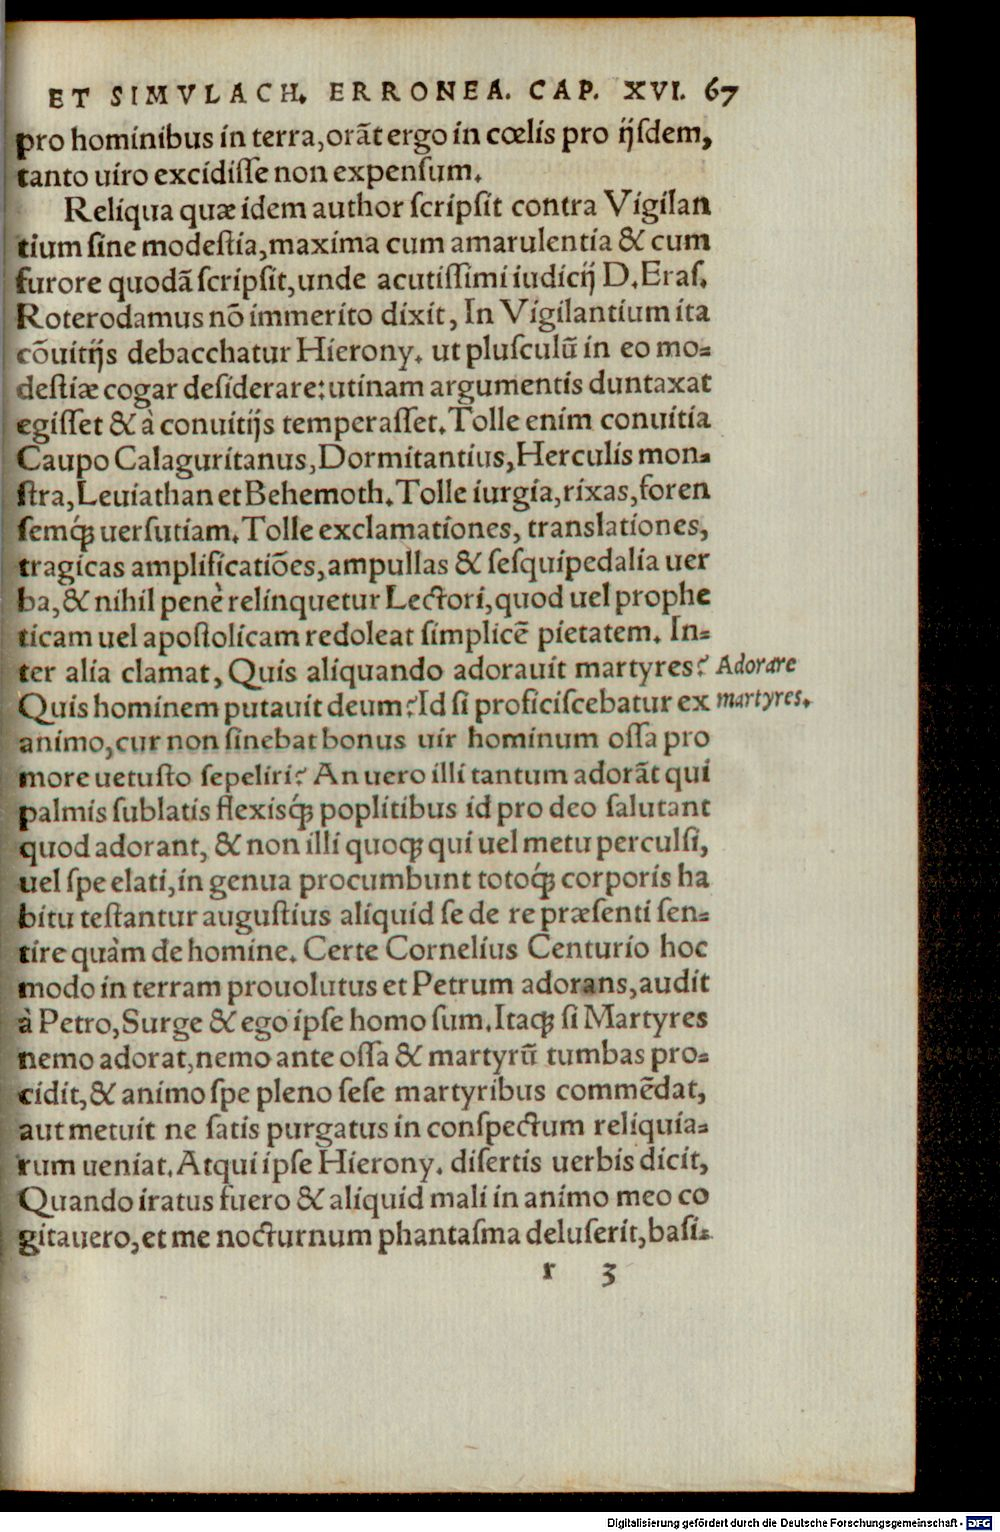 ET SIMVLACH. ERRONEA. CAP. XVI. 67
pro hominibus in terra, orãt ergo in cœlis pro ijſdem,
tanto uiro excidiſſe non expenſum.
Reliqua quæ idem author ſcripſit contra Vigilan
tium ſine modeſtia, maxima cum amarulentia & cum
furore quodã ſcripſit, unde acutiſſimi iudicij D. Eraſ.
Roterodamus nõ immerito dixit, In Vigilantium ita
cõuitijs debacchatur Hierony. ut pluſculũ in eo mo⸗
deſtiæ cogar deſiderare: utinam argumentis duntaxat
egiſſet & à conuitijs temperaſſet. Tolle enim conuitia
Caupo Calaguritanus, Dormitantius, Herculis mon⸗
ſtra, Leuiathan et Behemoth. Tolle iurgia, rixas, foren
ſemq́ꝫ uerſutiam. Tolle exclamationes, translationes,
tragicas amplificatiões, ampullas & ſeſquipedalia uer
ba, & nihil penè relinquetur Lectori, quod uel prophe
ticam uel apoſtolicam redoleat ſimplicẽ pietatem. In⸗
ter alia clamat, Quis aliquando adorauit martyres?
Adorare
Quis hominem putauit deum? Id ſi proficiſcebatur ex
martyres.
animo, cur non ſinebat bonus uir hominum oſſa pro
more uetuſto ſepeliri? An uero illi tantum adorãt qui
palmis ſublatis flexisq́ꝫ poplitibus id pro deo ſalutant
quod adorant, & non illi quoqꝫ qui uel metu perculſi,
uel ſpe elati, in genua procumbunt totoq́ꝫ corporis ha
bitu teſtantur auguſtius aliquid ſe de re præſenti ſen⸗
tire quàm de homine. Certe Cornelius Centurio hoc
modo in terram prouolutus et Petrum adorans, audit
à Petro, Surge & ego ipſe homo ſum. Itaqꝫ ſi Martyres
nemo adorat, nemo ante oſſa & martyrũ tumbas pro⸗
cidit, & animo ſpe pleno ſeſe martyribus commẽdat,
aut metuit ne ſatis purgatus in conſpectum reliquia⸗
rum ueniat. Atqui ipſe Hierony. diſertis uerbis dicit,
Quando iratus fuero & aliquid mali in animo meo co
gitauero, et me nocturnum phantaſma deluſerit, baſi⸗
r 3
Digitalisierung gefördert durch die Deutsche Forschungsgemeinschaft - DFG